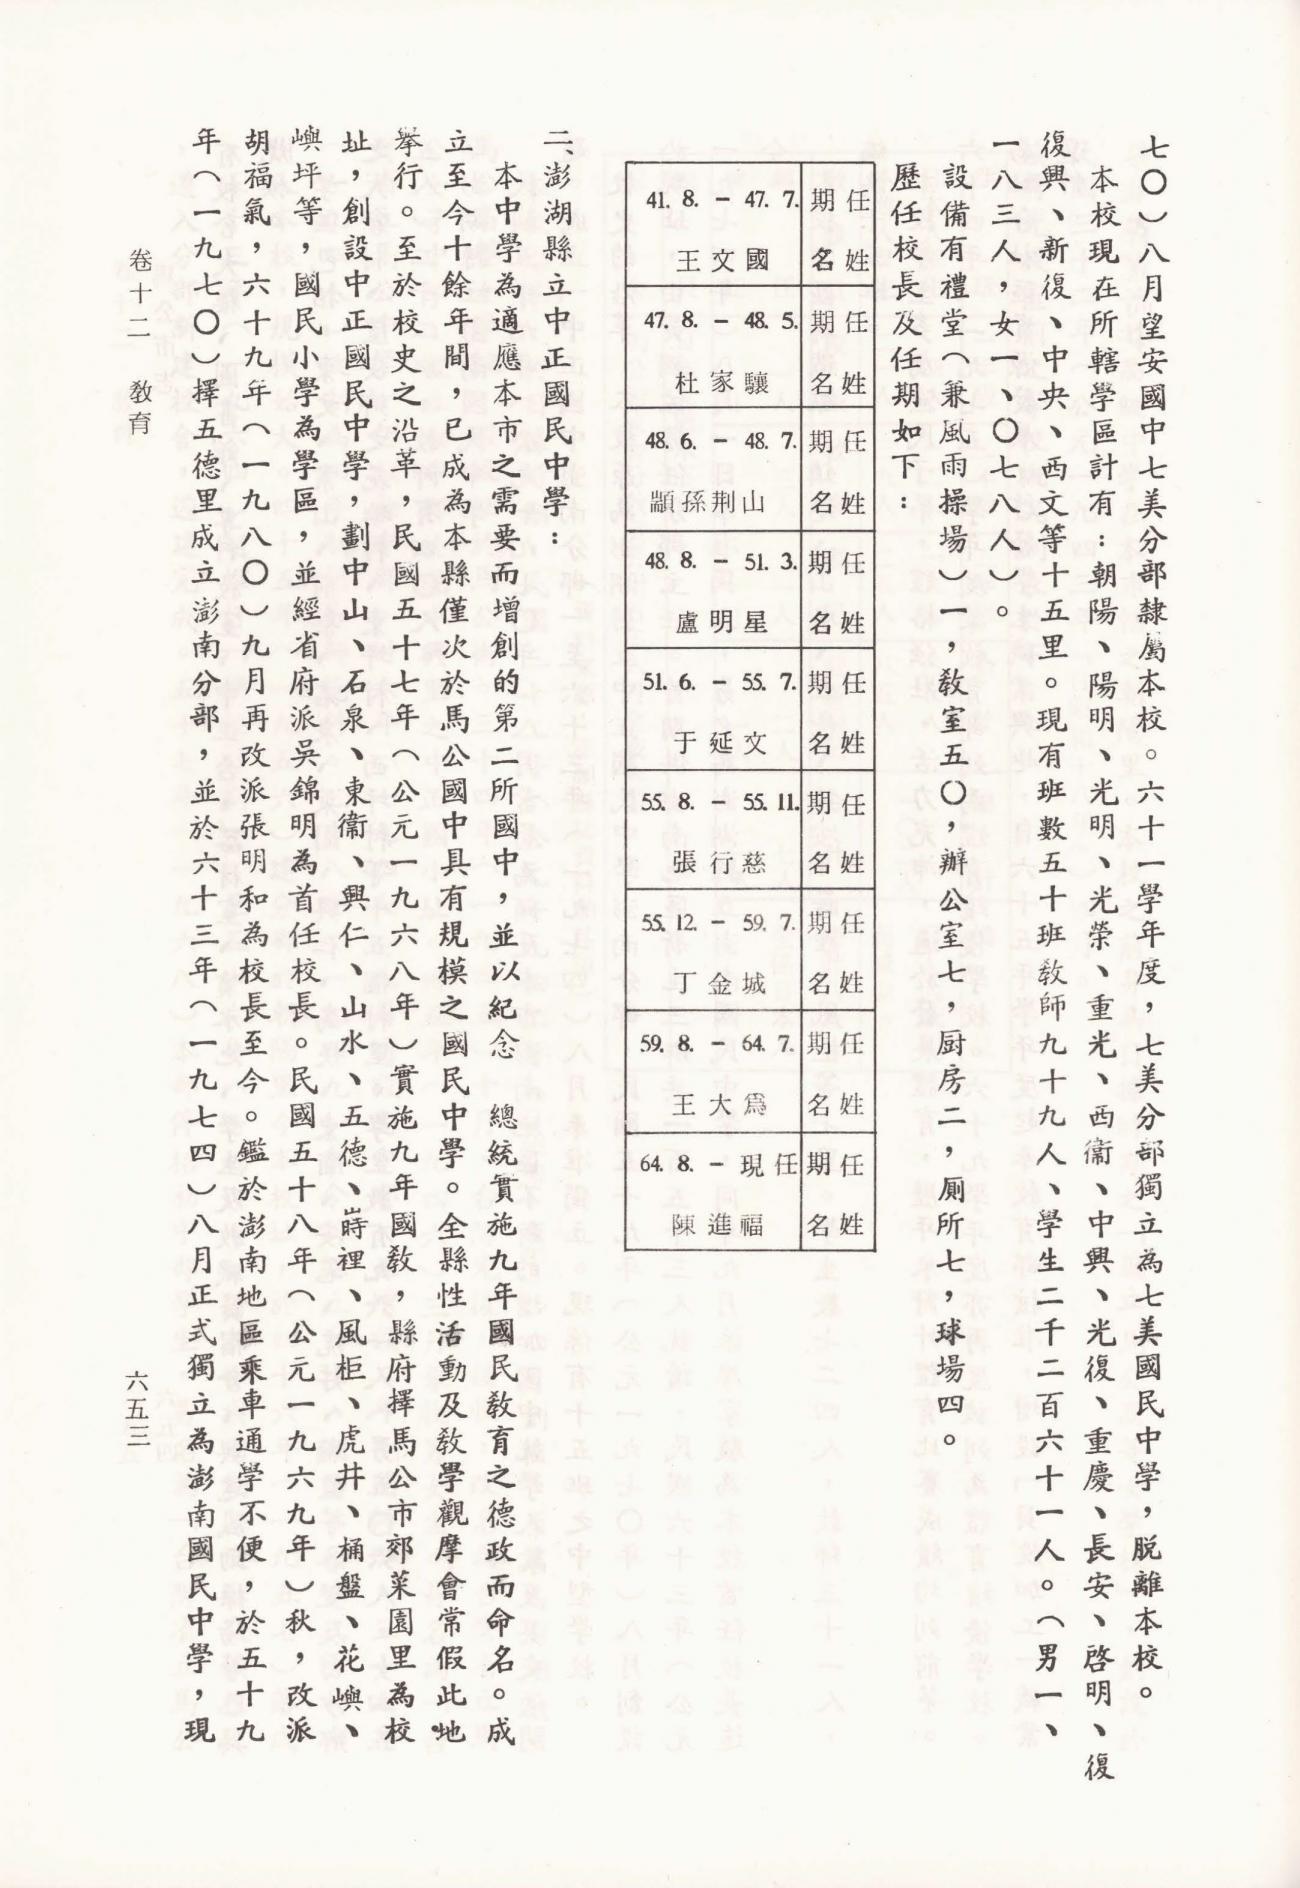 七〇）八月望安國中七美分部隸屬本校。六十一學年度，七美分部獨立為七美國民中學，脫離本校。
本校現在所轄學區計有：朝陽、陽明、光明、光榮、重光、西衞、中興、光復、重慶、長安、啓明、復
復興、新復、中央、西文等十五里。現有班數五十班教師九十九人、學生二千二百六十一人。（男一、
一八三人，女一、〇七八人）。
設備有禮堂（兼風雨操場）一，教室五〇，辦公室七，厨房二，厠所七，球場四。
歷任校長及任期如下：
姓名 王文國 任期 41. 8. － 47. 7.
姓名 杜家驤 任期 47. 8. － 48. 5.
姓名 顓孫荆山 任期 48. 6. － 48. 7.
姓名 盧明星 任期 48. 8. － 51. 3.
姓名 于延文 任期 51. 6. － 55. 7.
姓名 張行慈 任期 55. 8. － 55. 11.
姓名 丁金城 任期 55. 12. － 59. 7.
姓名 王大爲 任期 59. 8. － 64. 7.
姓名 陳進福 任期 64. 8. － 現任
二、澎湖縣立中正國民中學：
本中學為適應本市之需要而增創的第二所國中，並以紀念　總統實施九年國民教育之德政而命名。成
立至今十餘年間，已成為本縣僅次於馬公國中具有規模之國民中學。全縣性活動及教學觀摩會常假此地
舉行。至於校史之沿革，民國五十七年（公元一九六八年）實施九年國教，縣府擇馬公市郊菜園里為校
址，創設中正國民中學，劃中山、石泉、東衞、興仁、山水、五德、嵵裡、風柜、虎井、桶盤、花嶼、
嶼坪等，國民小學為學區，並經省府派吳錦明為首任校長。民國五十八年（公元一九六九年）秋，改派
胡福氣，六十九年（一九八〇）九月再改派張明和為校長至今。鑑於澎南地區乘車通學不便，於五十九
年（一九七〇）擇五德里成立澎南分部，並於六十三年（一九七四）八月正式獨立為澎南國民中學，現
卷十二　教育
六五三